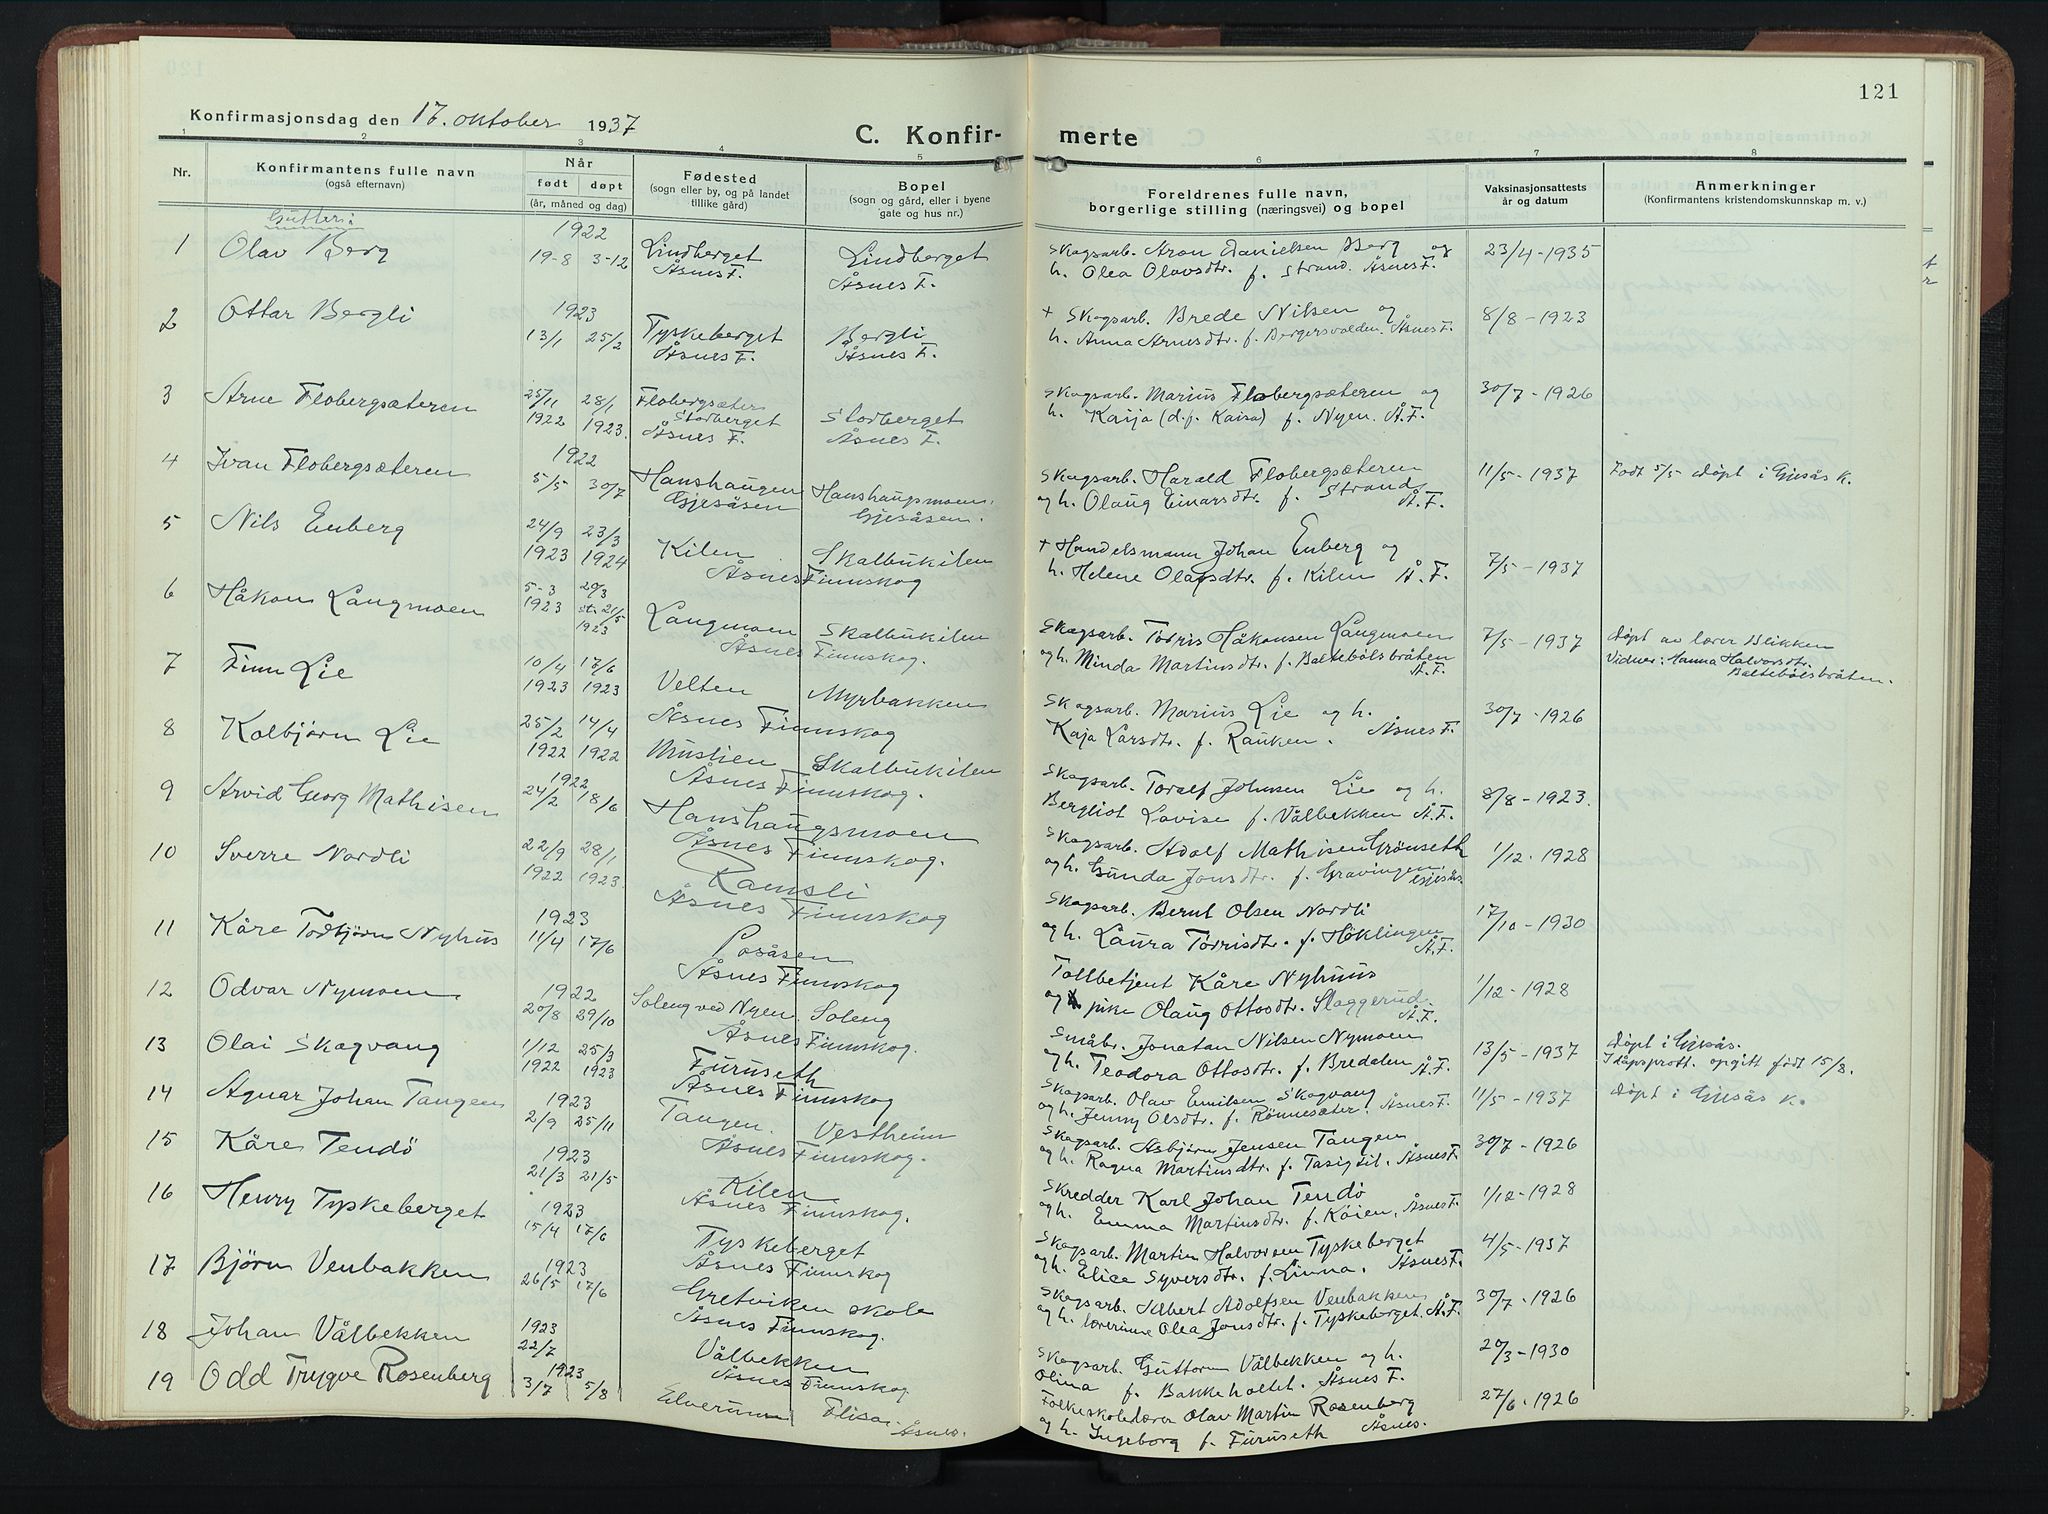 121
Konfirmasjonsdag den 17. oktober 1937
C. Konfir- merte
1 2 3 4 5 6 7 8
Nr.
Konfirmantens fulle navn
(også efternavn)
Når
født døpt
(år, måned og dag)
Fødested
(sogn eller by, og på landet
tillike gård)
Bopel
(sogn og gård, eller i byene
gate og hus nr.)
Foreldrenes fulle navn,
borgerlige stilling (næringsvei) og bopel
Vaksinasjonsattests
år og datum
Anmerkninger
(Konfirmantens kristendomskunnskap m. v.)
Gutter:
1 Olav Berg 1922 19-8 3-12 Lindberget Åsnes F. Lindberget Åsnes F.
Skogsarb. Aron Danielsen Berg og
h. Olea Olavsdtr. f. Strand. Åsnes F. 23/4-1935
2 Ottar Bergli 1923 13/1 25/2 Tyskeberget Åsnes F. Bergli Åsnes F.
+ Skogsarb. Brede Nilsen og
h. Anna Arnesdtr. f. Bergersvolden. Åsnes F. 8/8-1923
3 Arne Flobergsæteren 25/11 1922 28/1 1923. Flobergsæter Storberget Åsnes F. Storberget Åsnes F.
Skogsarb. Marius Flobergsæteren og
h. Kaija (d.p. Kaisa) f. Nyen. Å.F. 30/7-1926
4 Ivan Flobergsæteren 1922 5/5 30/7 Hanshaugen Gjesåsen Hanshaugsmoen. Gjesåsen.
Skogsarb. Harald Flobergsæteren
og h. Olaug Einarsdtr. f. Strand Å.F. 11/5-1937 Født 5/5 døpt i Gjesås K.
5 Nils Enberg 24/9 1923 23/3 1924 Kilen Skalbukilen
Åsnes Finnskog
+ Handelsmann Johan Enberg og
h. Helene Olafsdtr. f. Kilen Å.F. 7/5-1937
6 Håkon Langmoen 5-3 1923 29/3 st. 21/5 1923 Langmoen Skalbukilen
Åsnes Finnskog.
Skogsarb. Tørris Håkonsen Langmoen
og h. Minda Martinsdtr. f. Baltebølsbråten Å.F. 7/5-1937 døpt av lærer Blikken
Vidner: Hanna Halvorsdtr.
Baltebølsbråten.
7 Finn Lie 10/4 1923 17/6 1923 Velten Myrbakken
Åsnes Finnskog
Skogsarb. Marius Lie og h.
Kaja Larsdtr. f. Rauken. Åsnes F. 30/7-1926
8 Kolbjørn Lie 25/2 1922 14/4 1922 Muslien Skalbukilen
Åsnes Finnskog.
Skogsarb. Toralf Johnsen Lie og h.
Bergliot Lovise f. Vålbekken Å.F. 8/8-1923.
9 Arvid Georg Mathisen 1922 24/2 18/6 Hanshaugsmoen
Åsnes Finnskog.
Skogsarb. Adolf Mathisen Grønseth
og h. Gunda Jonsdtr. f. Gravingen Gjesås. 1/12-1928
10 Sverre Nordli 22/9 1922 28/1 1923. Ramsli
Åsnes Finnskog
Skogsarb. Bernt Olsen Nordli
og h. Laura Tørrisdtr. f. Høklingen Å.F. 17/10-1930
11 Kåre Torbjørn Nyhus 1923 11/4 17/6 Posåsen
Åsnes Finnskog
Tollbetjent Kåre Nyhuus
og pike Olaug Ottosdtr. Slaggerud. Å.F. 1/12-1928
12 Odvar Nymoen 1922 20/8 29/10 Soleng ved Nyen. Soleng
Åsnes Finnskog.
Småbr. Jonatan Nilsen Nymoen
og h. Teodora Ottosdtr. f. Bredalen Å.F. 13/5-1937 døpt i Gjesås.
I dåpsprott. opgitt født 15/8.
13 Olai Skogvang 1/12 1922 25/3 1923 Furuseth
Åsnes Finnskog
Skogsarb. Olav Emilsen Skogvang
og h. Jenny Olsdtr. f. Rønnesæter. Åsnes F. 11/5-1937 døpt i Gjesås K.
14 Agnar Johan Tangen 1923 2/9 25/11 Tangen. Vestheim
Åsnes Finnskog.
Skogsarb. Asbjørn Jensen Tangen
og h. Ragna Martinsdtr. f. Tasigtil. Åsnes F. 30/7-1926
15 Kåre Tendø 1923 21/3 21/5 Kilen
Åsnes Finnskog.
Skredder Karl Johan Tendø
og h. Emma Martinsdtr. f. Køien. Åsnes F. 1/12-1928
16 Henry Tyskeberget 1923 15/4 17/6 Tyskeberget
Åsnes Finnskog
Skogsarb. Martin Halvorsen Tyskeberget
og h. Elise Syversdtr. f. Linna. Åsnes F. 4/5-1937
17 Bjørn Venbakken 1923 26/5 17/6 Gretviken skole
Åsnes Finnskog.
Skogsarb. Albert Adolfsen Venbakken
og h. lærerinne Olea Jonsdtr. f. Tyskeberget. Å.F. 30/7-1926
18 Johan Vålbekken 1923 22/7 Vålbekken
Åsnes Finnskog
Skogsarb. Guttorm Vålbekken og h.
Olina f. Bakkeholtet. Åsnes F. 20/3-1930
19 Odd Trygve Rosenberg 1923 3/7 5/8 Elverum Flisa. Åsnes.
Folkeskolelærer Olav Martin Rosenberg
og h. Ingeborg f. Furuseth Åsnes. 27/6-1926